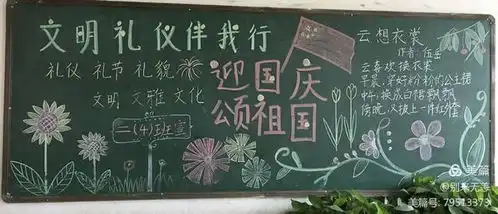 文明礼仪伴我行
礼仪 礼节 礼貌
文明 文雅 文化
二(4)班宣
迎国庆
颂祖国
云想衣裳
作者:伍岳
云喜欢换衣裳
早晨,穿好粉粉的公主裙
中午,换成白裙飘飘
傍晚,又披上一件红
美篇
@别来无恙
美篇号:79513373